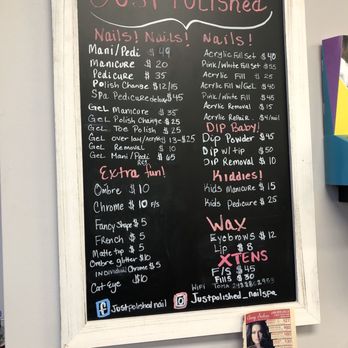 Just Polished
Nails! Nails!
Mani/Pedi $49
Manicure $20
Pedicure $35
Polish Change $12/15
Spa Pedicure deluxe $45
Gel Manicure $35
Gel Polish Change $25
Gel Toe Polish $25
Gel Removal $10
Gel Mani/Pedi Reg $65
Extra fun!
Ombre $10
Chrome $10 F/S
Fancy Shape $5
French $5
Matte top $5
Ombre glitter $10
Individual Chrome $5
Cat-Eye $10
Justpolished nail
Nails!
Acrylic Full Set $40
Pink/White Full Set $55
Acrylic Fill $25
Acrylic Fill w/Gel $40
Pink/White Fill $45
Acrylic Removal $15
Acrylic Repair $4/nail
Dip Baby!
Dip Powder $45
Dip w/tip $50
Dip Removal $10
Kiddies!
Kids Manicure $15
Kids Pedicure $25
Wax
Eyebrows $12
Lip $8
XTENS
F/S $45
Fills $30
WiFi
Justpolished_nailspa